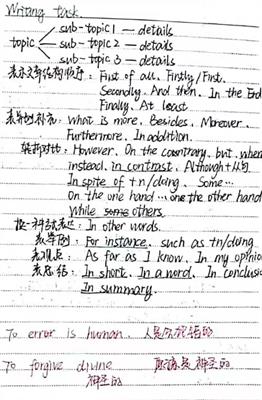 Writing task.
sub-topic 1 — details
topic sub-topic 2 — details
sub-topic 3 — details
表示文章结构顺序: First of all. Firstly/First.
Secondly. And then. In the End
Finally. At least.
表并列补充: What is more. Besides. Moreover.
Furthermore. In addition.
转折对比: However. On the coantrary. but. when
instead. in contrast. Although+从句
In spite of +n/doing. Some…
On the one hand … one the other hand
While some others.
换一种表达: In other words.
表举例: For instance. such as +n/doing
表观点: As far as I know. In my opinion
表总结: In short. In a word. In conclusion
In summary.
To error is human. 人是
To forgive divine 是神圣的
神圣的